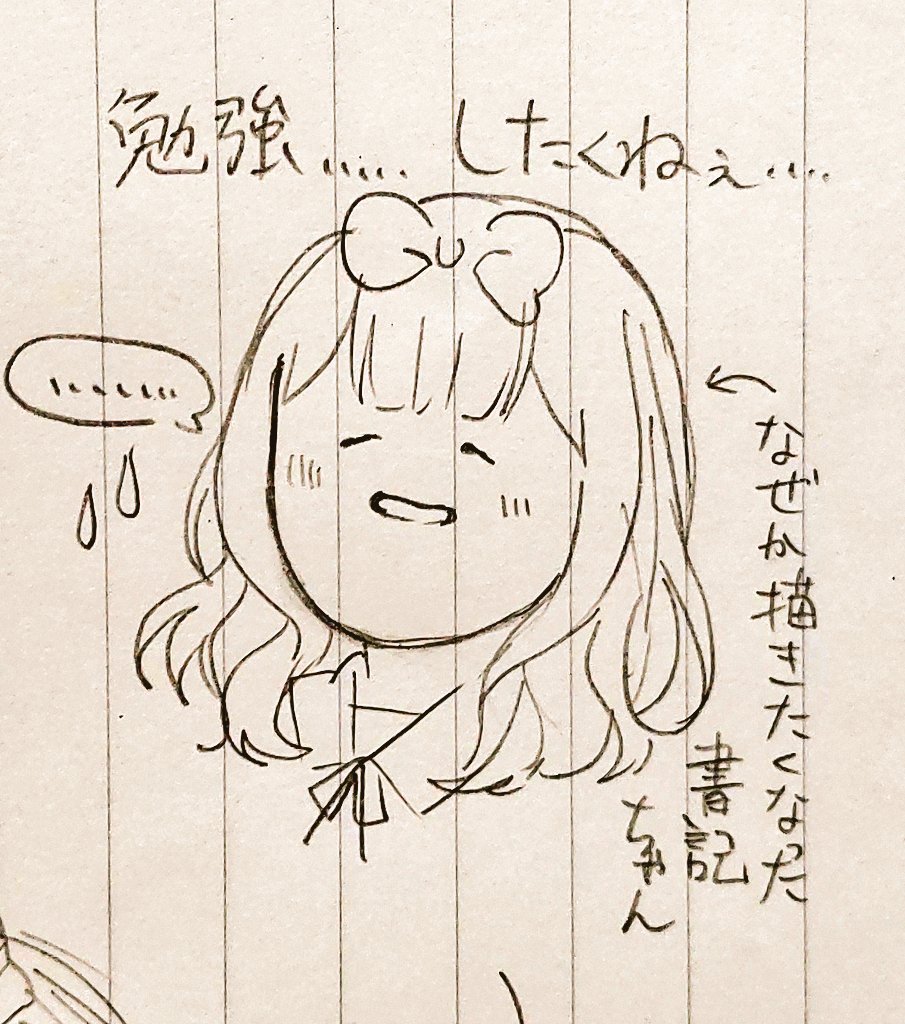 勉強..... したくねぇ....
........
なぜか描きたくなった
書記
ちゃん